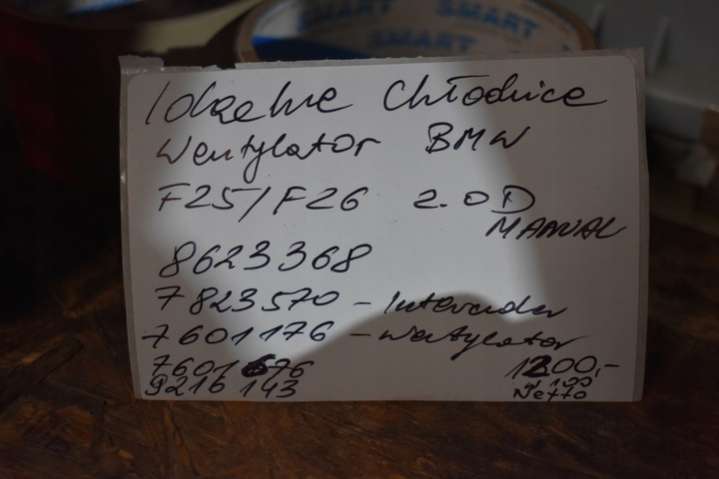 SMART SMART
SMART
Idealne Chłodnice
Wentylator BMW
F25/F26 2.0D
MANUAL
8623368
7823570 - Intercooler
7601176 - Wentylator
7601676 1200,-
9216143 Netto